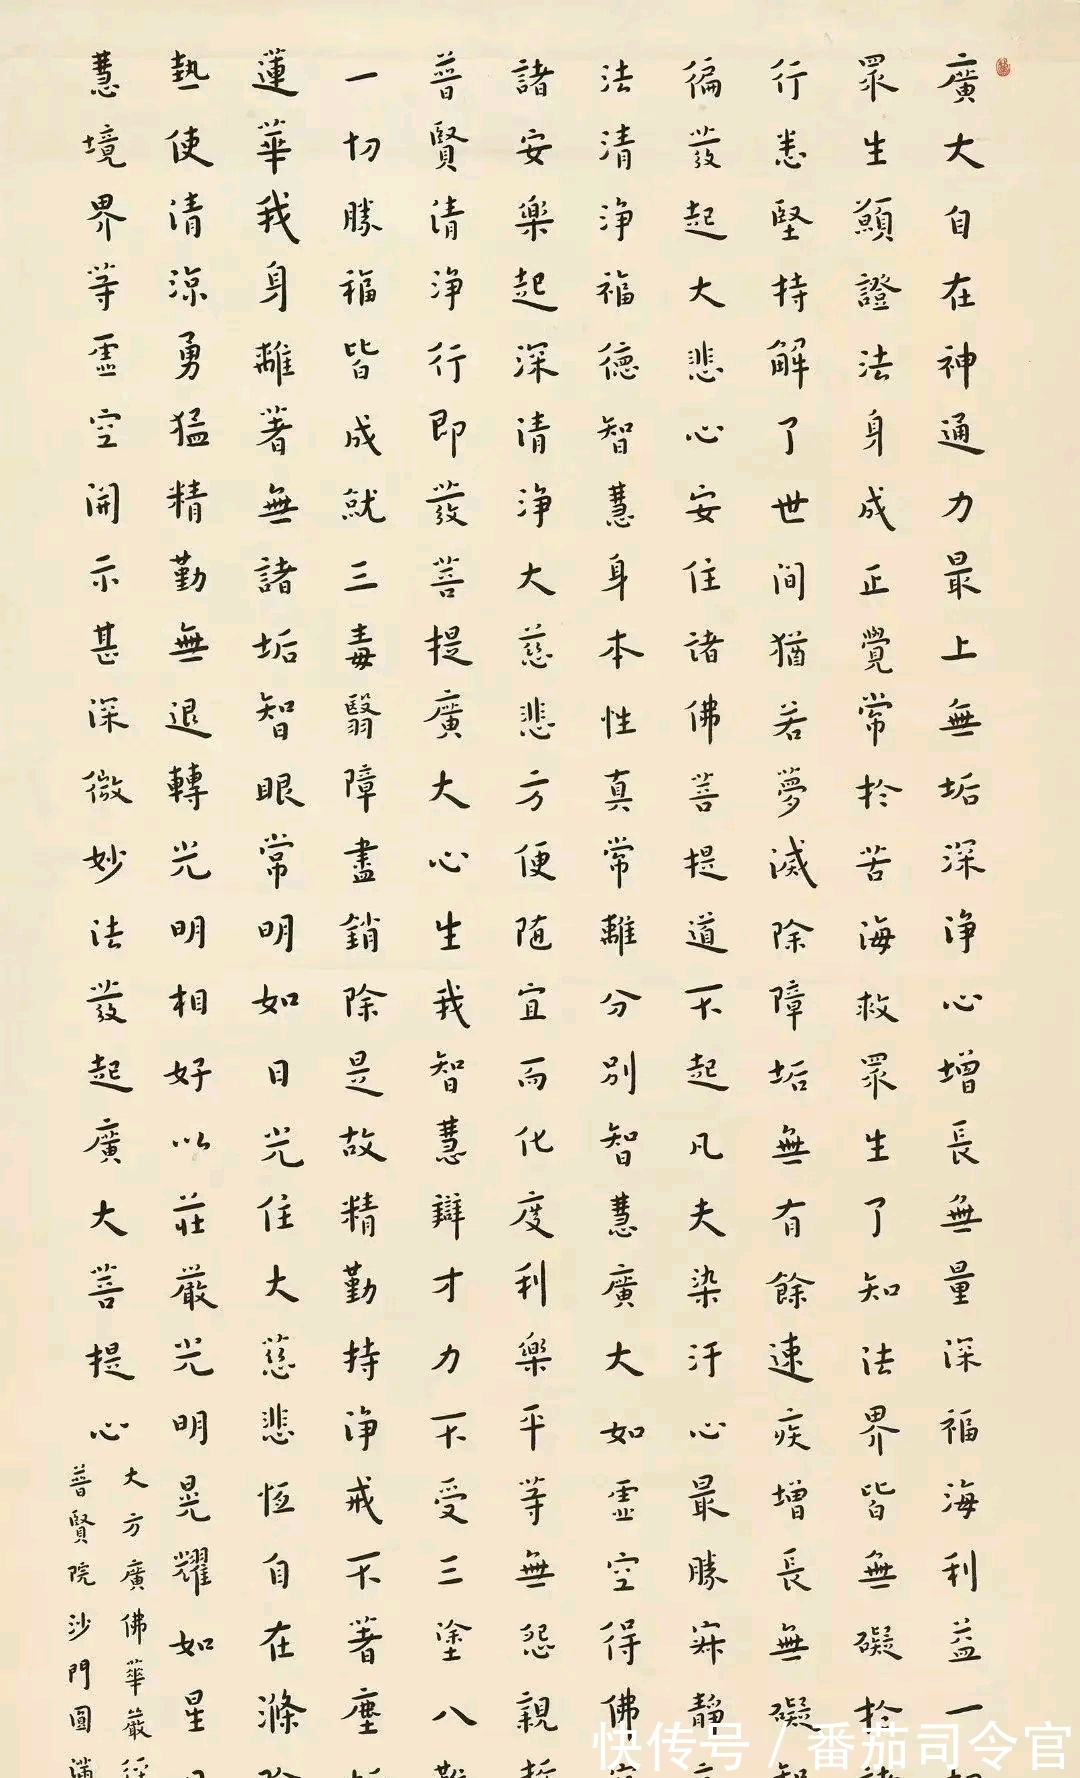 廣大自在神通力最上無垢深浄心增長無量深福海利益一切
眾生願證法身成正覺常於苦海救眾生了知法界皆無礙於諸
行悉堅持解了世间猶若夢滅除障垢無有餘速疾增長無礙智
徧發起大悲心安住諸佛菩提道不起凡夫染汙心最勝寂靜
法清浄福德智慧身本性真常離分別智慧廣大如虛空得佛
諸安樂起深清浄大慈悲方便随宜而化度利樂平等無怨親
普賢清浄行即發菩提廣大心生我智慧辯才力不受三塗八
一切勝福皆成就三毒翳障盡銷除是故精勤持浄戒不著塵
蓮華我身離著無諸垢智眼常明如日光住大慈悲恆自在滌除
熱使清涼勇猛精勤無退轉光明相好以莊嚴光明晃耀如星
慧境界等虛空開示甚深微妙法發起廣大菩提心
大方廣佛華嚴經
普賢院沙門圓滿
快传号/番茄司令官